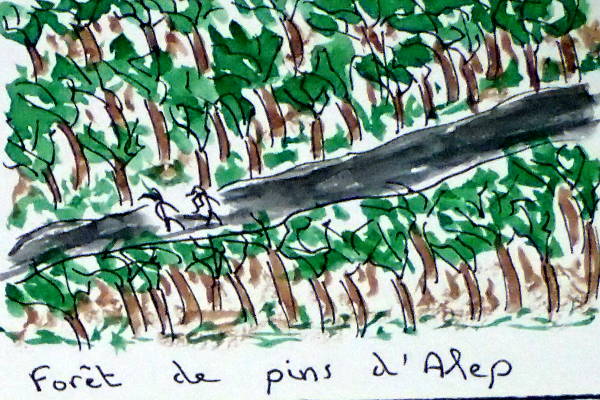 Forêt de pins d'Alep